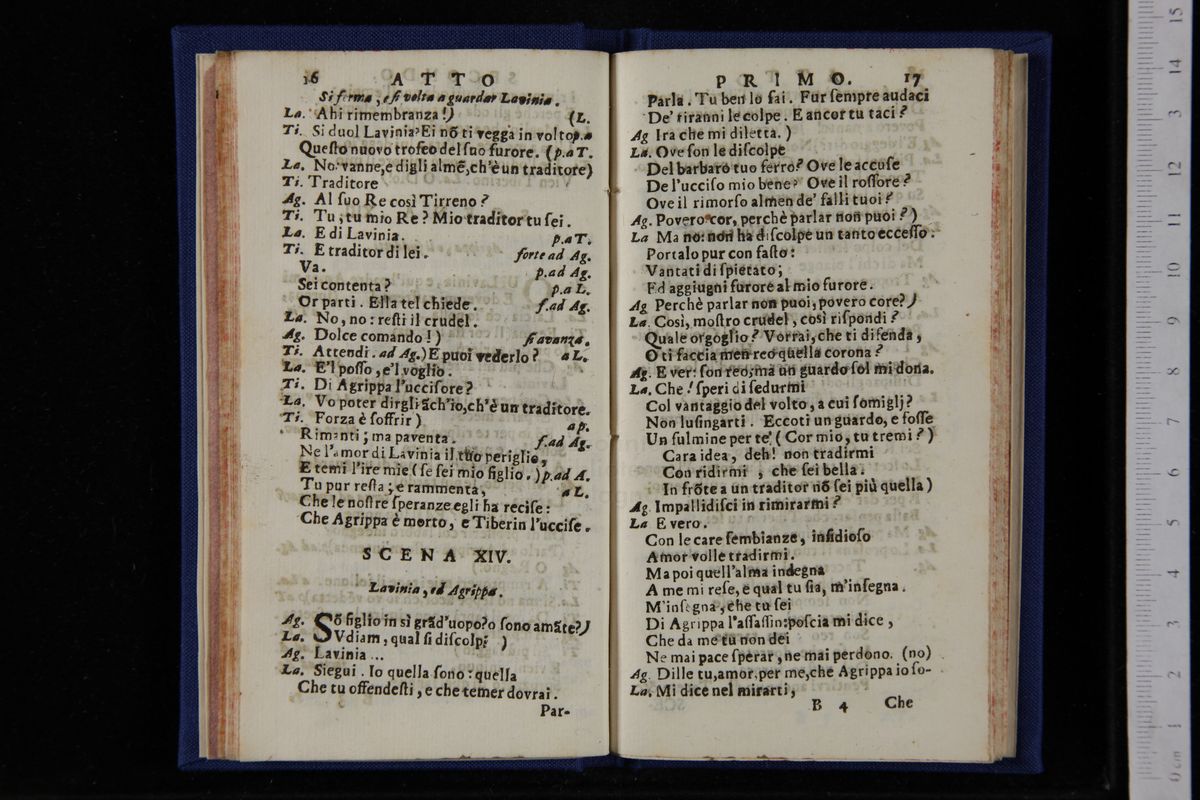 16 ATTO
Si ferma, e si volta a guardar Lavinia.
La. Ahi rimembranza!) (L.
Ti. Si duol Lavinia? Ei nõ ti vegga in volto p.a
Queſto nuovo trofeo del ſuo furore. (p.a T.
La. No: vanne, e digli almẽ, ch'è un traditore)
Ti. Traditore
Ag. Al ſuo Re così Tirreno?
Ti. Tu, tu mio Re? Mio traditor tu ſei.
La. E di Lavinia. p.a T.
Ti. E traditor di lei. forte ad Ag.
Va. p.ad Ag.
Sei contenta? p.a L.
Or parti. Ella tel chiede. f.ad Ag.
La. No, no: reſti il crudel.
Ag. Dolce comando!) ſi avanza.
Ti. Attendi. ad Ag.) E puoi vederlo? a L.
La. E'l poſſo, e'l voglio.
Ti. Di Agrippa l'ucciſore?
La. Vo poter dirgli ãch'io, ch'è un traditore.
Ti. Forza è ſoffrir) ap.
Rimanti; ma paventa. f.ad Ag.
Ne l'amor di Lavinia il tuo periglio,
E temi l'ire mie (ſe ſei mio figlio.) p.ad A.
Tu pur reſta; e rammenta, a L.
Che le noſtre ſperanze egli ha reciſe:
Che Agrippa è morto, e Tiberin l'ucciſe.
SCENA XIV.
Lavinia, ed Agrippa.
Ag. Sõ figlio in sì grãd'uopo? o ſono amãte?)
La. SUdiam, qual ſi diſcolp: )
Ag. Lavinia ...
La. Siegui. Io quella ſono: quella
Che tu offendeſti, e che temer dovrai.
Par-
PRIMO. 17
Parla. Tu ben lo ſai. Fur ſempre audaci
De' tiranni le colpe. E ancor tu taci?
Ag Ira che mi diletta.)
La. Ove ſon le diſcolpe
Del barbaro tuo ferro? Ove le accuſe
De l'ucciſo mio bene? Ove il roſſore?
Ove il rimorſo almen de' falli tuoi?
Ag. Povero cor, perchè parlar non puoi?)
La Ma no: non ha diſcolpe un tanto ecceſſo.
Portalo pur con faſto:
Vantati di ſpietato;
Ed aggiugni furore al mio furore.
Ag Perchè parlar non puoi, povero core?)
La. Così, moſtro crudel, così riſpondi?
Quale orgoglio? Vorrai, che ti difenda,
O ti faccia men reo quella corona?
Ag. E ver: ſon reo; ma un guardo ſol mi dona.
La. Che! ſperi di ſedurmi
Col vantaggio del volto, a cui ſomiglj?
Non luſingarti. Eccoti un guardo, e foſſe
Un fulmine per te! (Cor mio, tu tremi?)
Cara idea, deh! non tradirmi
Con ridirmi , che ſei bella.
In frõte a un traditor nõ ſei più quella)
Ag. Impallidiſci in rimirarmi?
La E vero.
Con le care ſembianze, inſidioſo
Amor volle tradirmi.
Ma poi quell'alma indegna
A me mi reſe, e qual tu ſia, m'inſegna.
M'inſegna, che tu ſei
Di Agrippa l'aſſaſſin: poſcia mi dice,
Che da me tu non dei
Ne mai pace ſperar, ne mai perdono. (no)
Ag. Dille tu, amor, per me, che Agrippa io ſo-
La. Mi dice nel mirarti,
B 4 Che